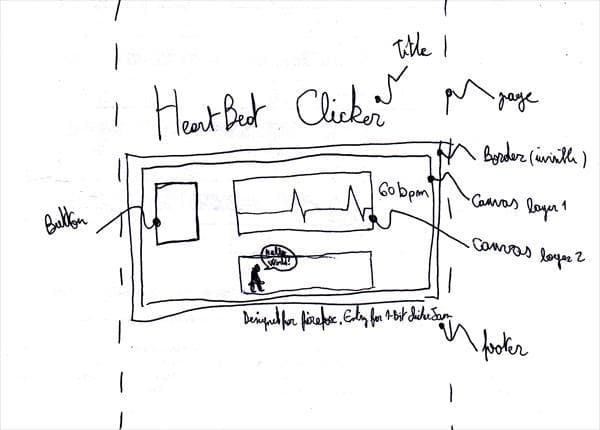 Title
HeartBeat Clicker
page
Border (invisible)
Canvas layer 1
60 bpm
Button
Canvas layer 2
Hello
World!
Designed for firefox. Entry for 1-Bit Clicker Jam
footer